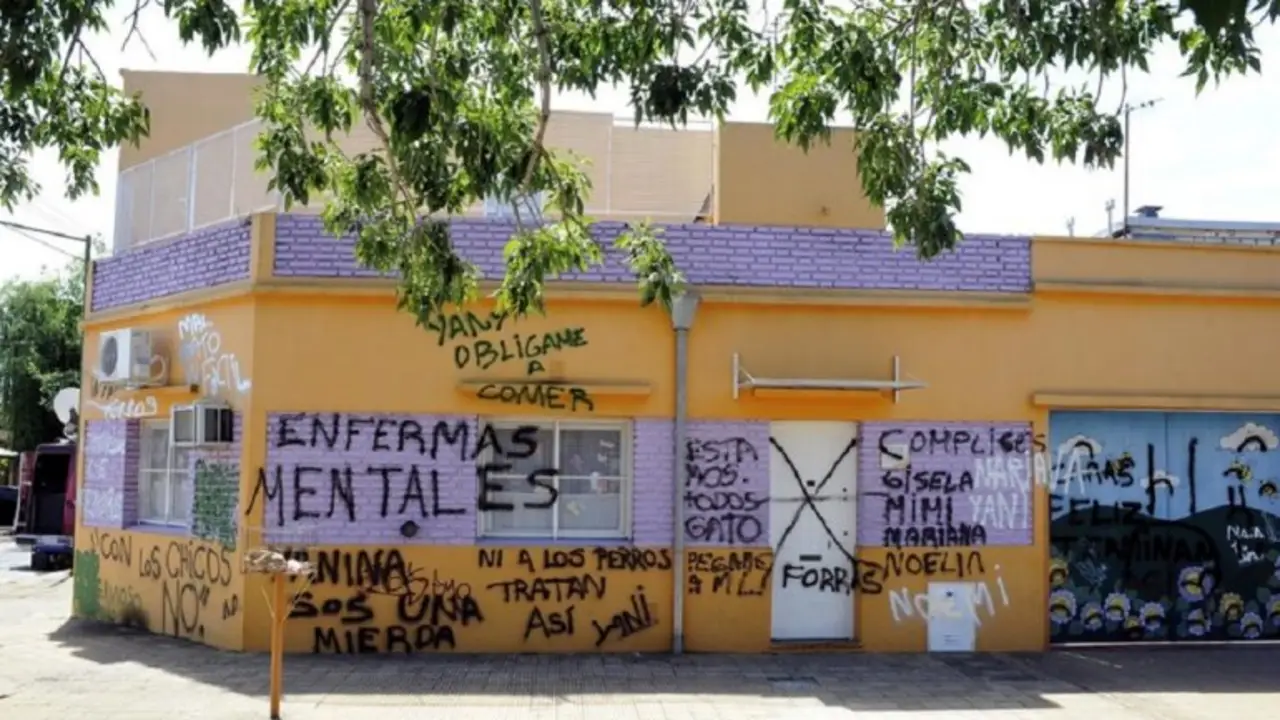 YANY
OBLIGAME
A
COMER
ENFERMAS
MENTALES
ESTA
MOS.
TODOS
GATO
COMPLICES
GISELA
MIMI
MARIANA
NOELIA
NOEMI
MARIA
YANI
FELIZ
"CON LOS CHICOS
NO".
YANINA
SOS UNA
MIERDA
NI A LOS PERROS
TRATAN
ASÍ YANI
PEGAME
A MI
FORRAS